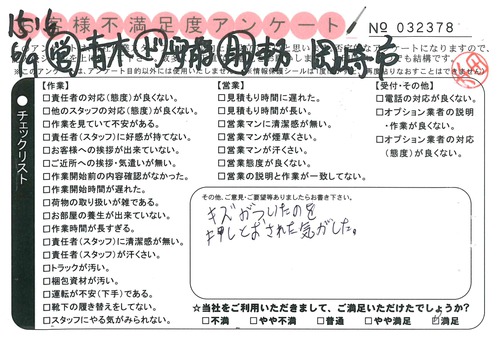 お客様不満足度アンケート
№ 032378
チェックリスト
【作業】
□責任者の対応(態度)が良くない。
□他のスタッフの対応(態度)が良くない。
□作業を見ていて不安がある。
□責任者(スタッフ)に好感が持てない。
□お客様への挨拶が出来ていない。
□ご近所への挨拶・気遣いが無い。
□作業開始前の内容確認がなかった。
□作業開始時間が遅れた。
□荷物の取り扱いが雑である。
□お部屋の養生が出来ていない。
□作業時間が長すぎる。
□責任者(スタッフ)に清潔感が無い。
□責任者(スタッフ)が汗くさい。
□トラックが汚い。
□梱包資材が汚い。
□運転が不安(下手)である。
□靴下の履き替えをしてない。
□スタッフにやる気がみられない。
【営業】
□見積もり時間に遅れた。
□見積もり時間が長い。
□営業マンに清潔感が無い。
□営業マンが煙草くさい。
□営業マンが汗くさい。
□営業態度が良くない。
□営業の説明と作業が一致してない。
【受付・その他】
□電話の対応が良くない。
□オプション業者の説明
・作業が良くない。
□オプション業者の対応
(態度)が良くない。
その他、ご意見・ご要望等ありましたらお書き下さい。
キズがついたのを
押しとおされた気がした。
☆当社をご利用いただきまして、ご満足いただけたでしょうか?
□不満 □やや不満 □普通 □やや満足 □満足